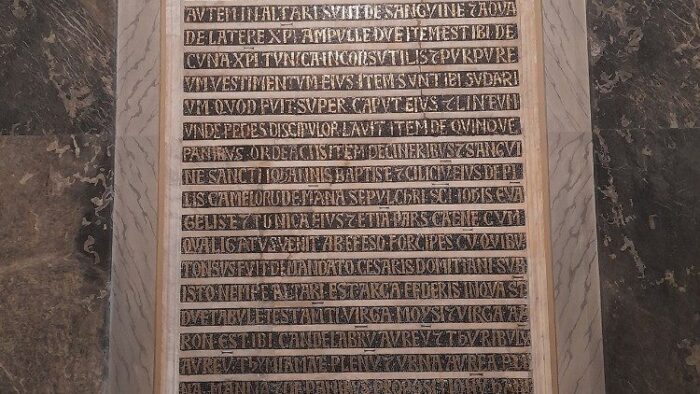 AVTEM IN ALTARI SVNT DE SANGVINE ⁊ AQVA
DE LATERE XPI AMPVLLE DVE ITEM EST IBI DE
CVNA XPI TVNICA INCONSVTILIS ⁊ PVRPVRE
VM VESTIMENTVM EIVS ITEM SVNT IBI SVDARI
VM QVOD FVIT SVPER CAPVT EIVS ⁊ LINTEVM
VNDE PEDES DISCIPVLOR LAVIT ITEM DE QVINQVE
PANIBVS ORDEACIIS ITEM DE CINERIBVS ⁊ SANGVI
NE SANCTI IOANNIS BAPTISE ⁊ CILICIV EIVS DE PI
LIS CAMELORV DE MANA SEPVLCHRI SCI IOHIS EVA
GELISTE ⁊ TVNICA EIVS ⁊ ETIA PARS CAENE CVM
QVA LIGATVS VENIT AB EFESO FORCIPES CV QVIBV
TONSVS FVIT DE MANDATO CESARIS DOMITIANI SVB
ISTO NEMPE ALTARI EST ARCA FEDERIS IN QVA ST
DVE TABVLE TESTAMTI VIRGA MOYSI ⁊ VIRGA AA
RON EST IBI CANDELABRV AVREV ⁊ TVRIBVLV
AVREV THYMIAMAE PLENV ⁊ VRNA AVREA PLE